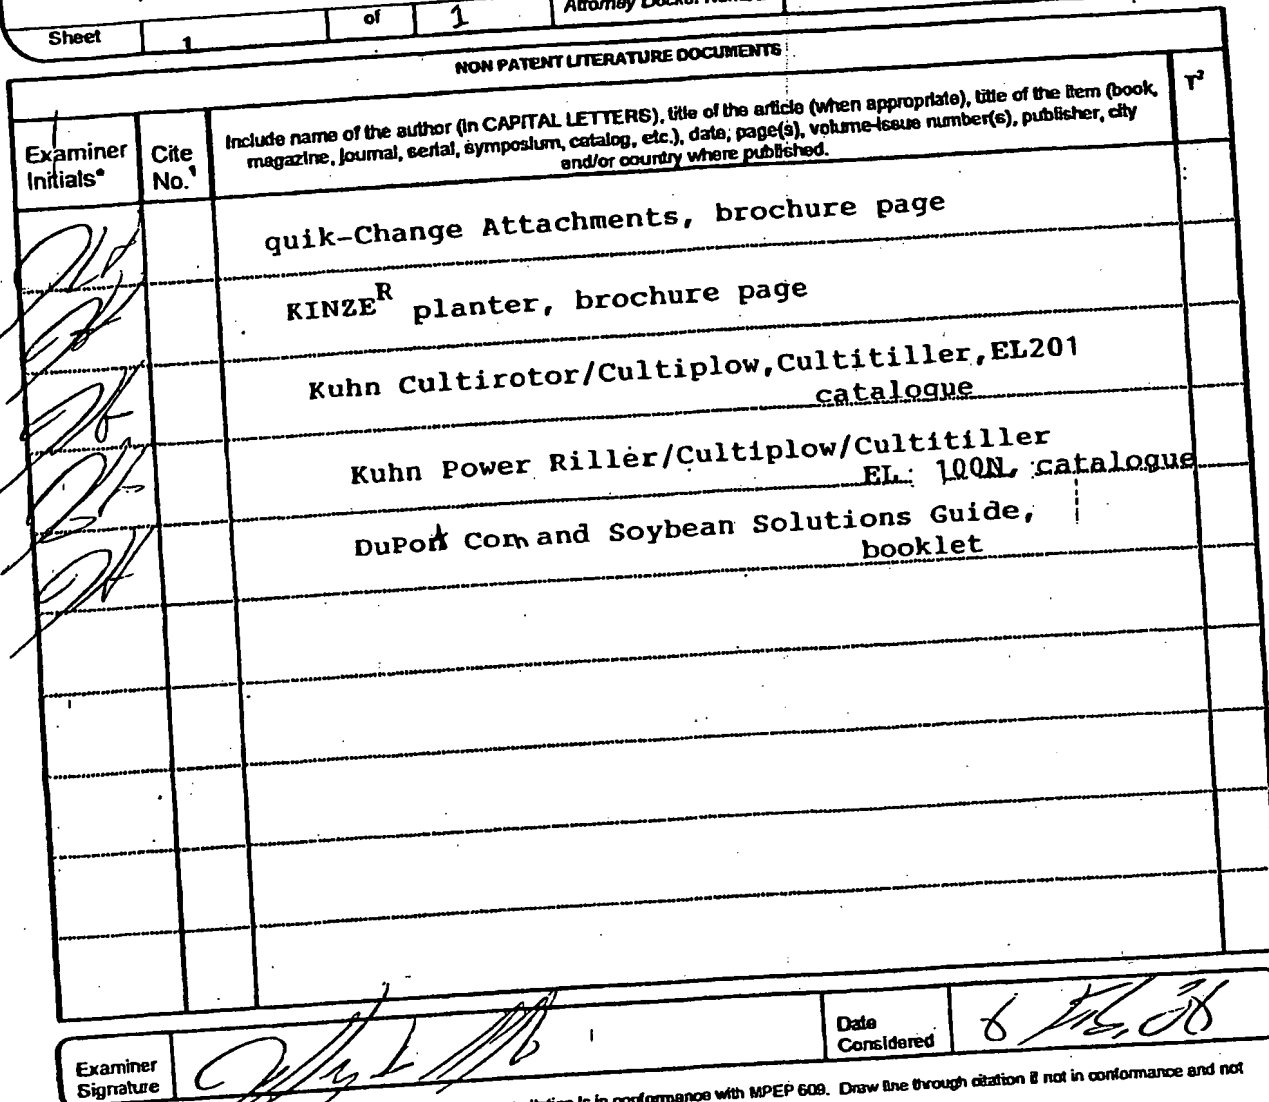 Sheet 1 of 1 Attorney Docket
NON PATENT LITERATURE DOCUMENTS
Examiner Initials* Cite No.¹
Include name of the author (in CAPITAL LETTERS), title of the article (when appropriate), title of the item (book,
magazine, journal, serial, symposium, catalog, etc.), date, page(s), volume-issue number(s), publisher, city
and/or country where published.
T²
quik-Change Attachments, brochure page
KINZE R planter, brochure page
Kuhn Cultirotor/Cultiplow,Cultitiller,EL201
catalogue
Kuhn Power Riller/Cultiplow/Cultitiller
EL: 100N, catalogue
DuPont Corn and Soybean Solutions Guide,
booklet
Examiner
Signature
Date
Considered
is in conformance with MPEP 609. Draw line through citation if not in conformance and not